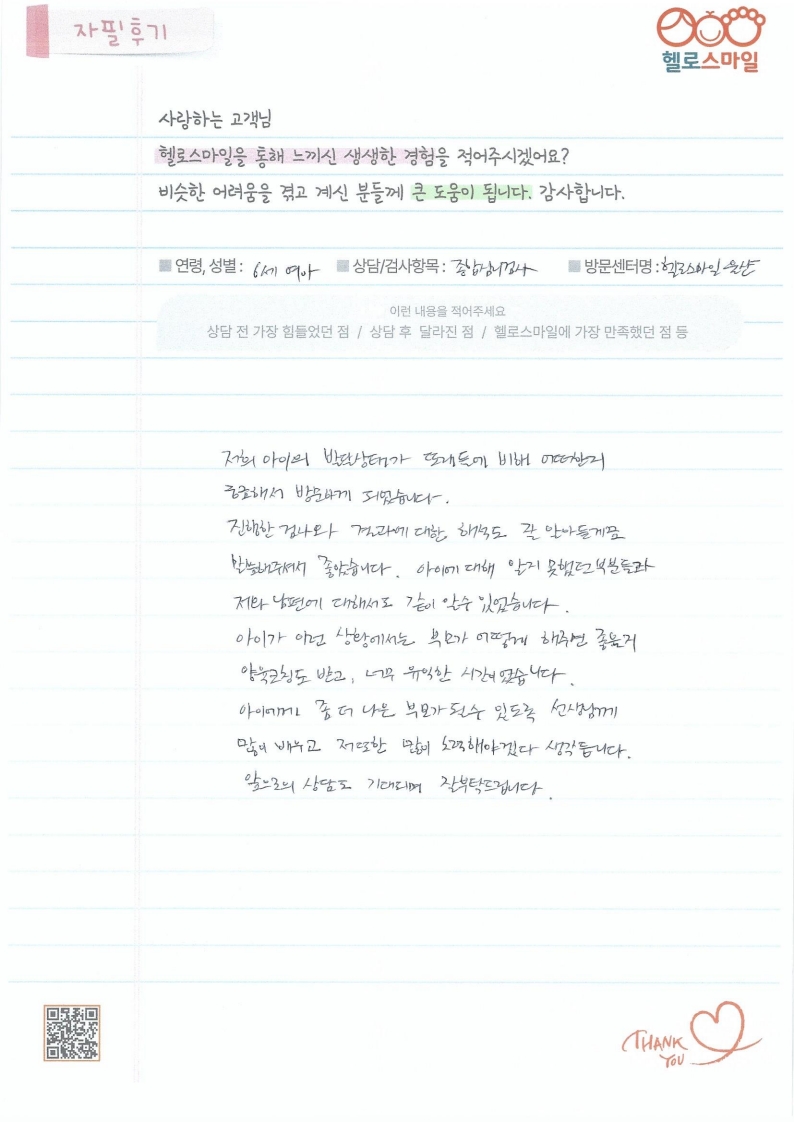 자필후기
헬로스마일
사랑하는 고객님
헬로스마일을 통해 느끼신 생생한 경험을 적어주시겠어요?
비슷한 어려움을 겪고 계신 분들께 큰 도움이 됩니다. 감사합니다.
연령, 성별 : 6세 여아 상담/검사항목 : 종합심리검사 방문센터명 : 헬로스마일
이런 내용을 적어주세요
상담 전 가장 힘들었던 점 / 상담 후 달라진 점 / 헬로스마일에 가장 만족했던 점 등
저희 아이의 발달상태가 또래들에 비해 어떠한지
궁금해서 방문하게 되었습니다.
진행한 검사와 결과에 대한 해석도 잘 알아듣게끔
말씀해주셔서 좋았습니다. 아이에 대해 알지 못했던 부분들과
저와 남편에 대해서도 같이 알수 있었습니다.
아이가 이런 상황에서는 부모가 어떻게 해주면 좋을지
양육코칭도 받고, 너무 유익한 시간이였습니다.
아이에게 좀 더 나은 부모가 될수 있도록 선생님께
많이 배우고 저또한 많이 노력해야겠다 생각듭니다.
앞으로의 상담도 기대되며 잘부탁드립니다.
THANK
YOU